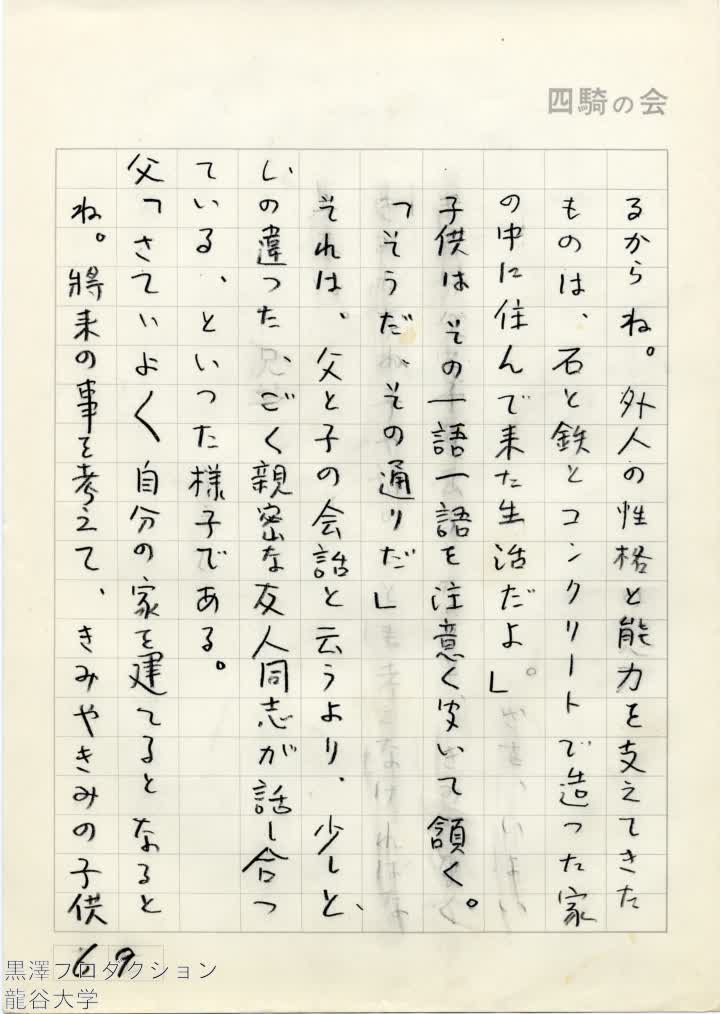 四騎の会
るからね。外人の性格と能力を支えてきた
ものは、石と鉄とコンクリートで造った家
の中に住んで来た生活だよ」
子供はその一語一語を注意く安いて頷く。
「そうだね、その通りだ」
それは、父と子の会話と云うより、少しと、
しの違った、ごく親密な友人同志が話し合っ
ている、といった様子である。
父「さていよく自分の家を建てるとなると
ね。將来の事を考えて、きみやきみの子供
69
黒澤プロダクション
龍谷大学